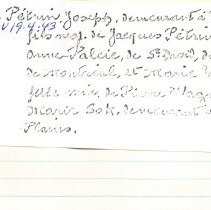 Pétrin Joseph, demeurant à
19.4.43
fils maj. de Jacques Pétrin
Anne Valcie, de St David,
de Montréal, et Marie
fille min. de Pierre
Marie demeurant
Plains.